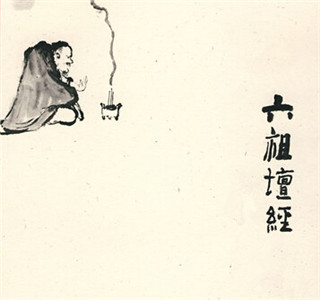 六祖壇經